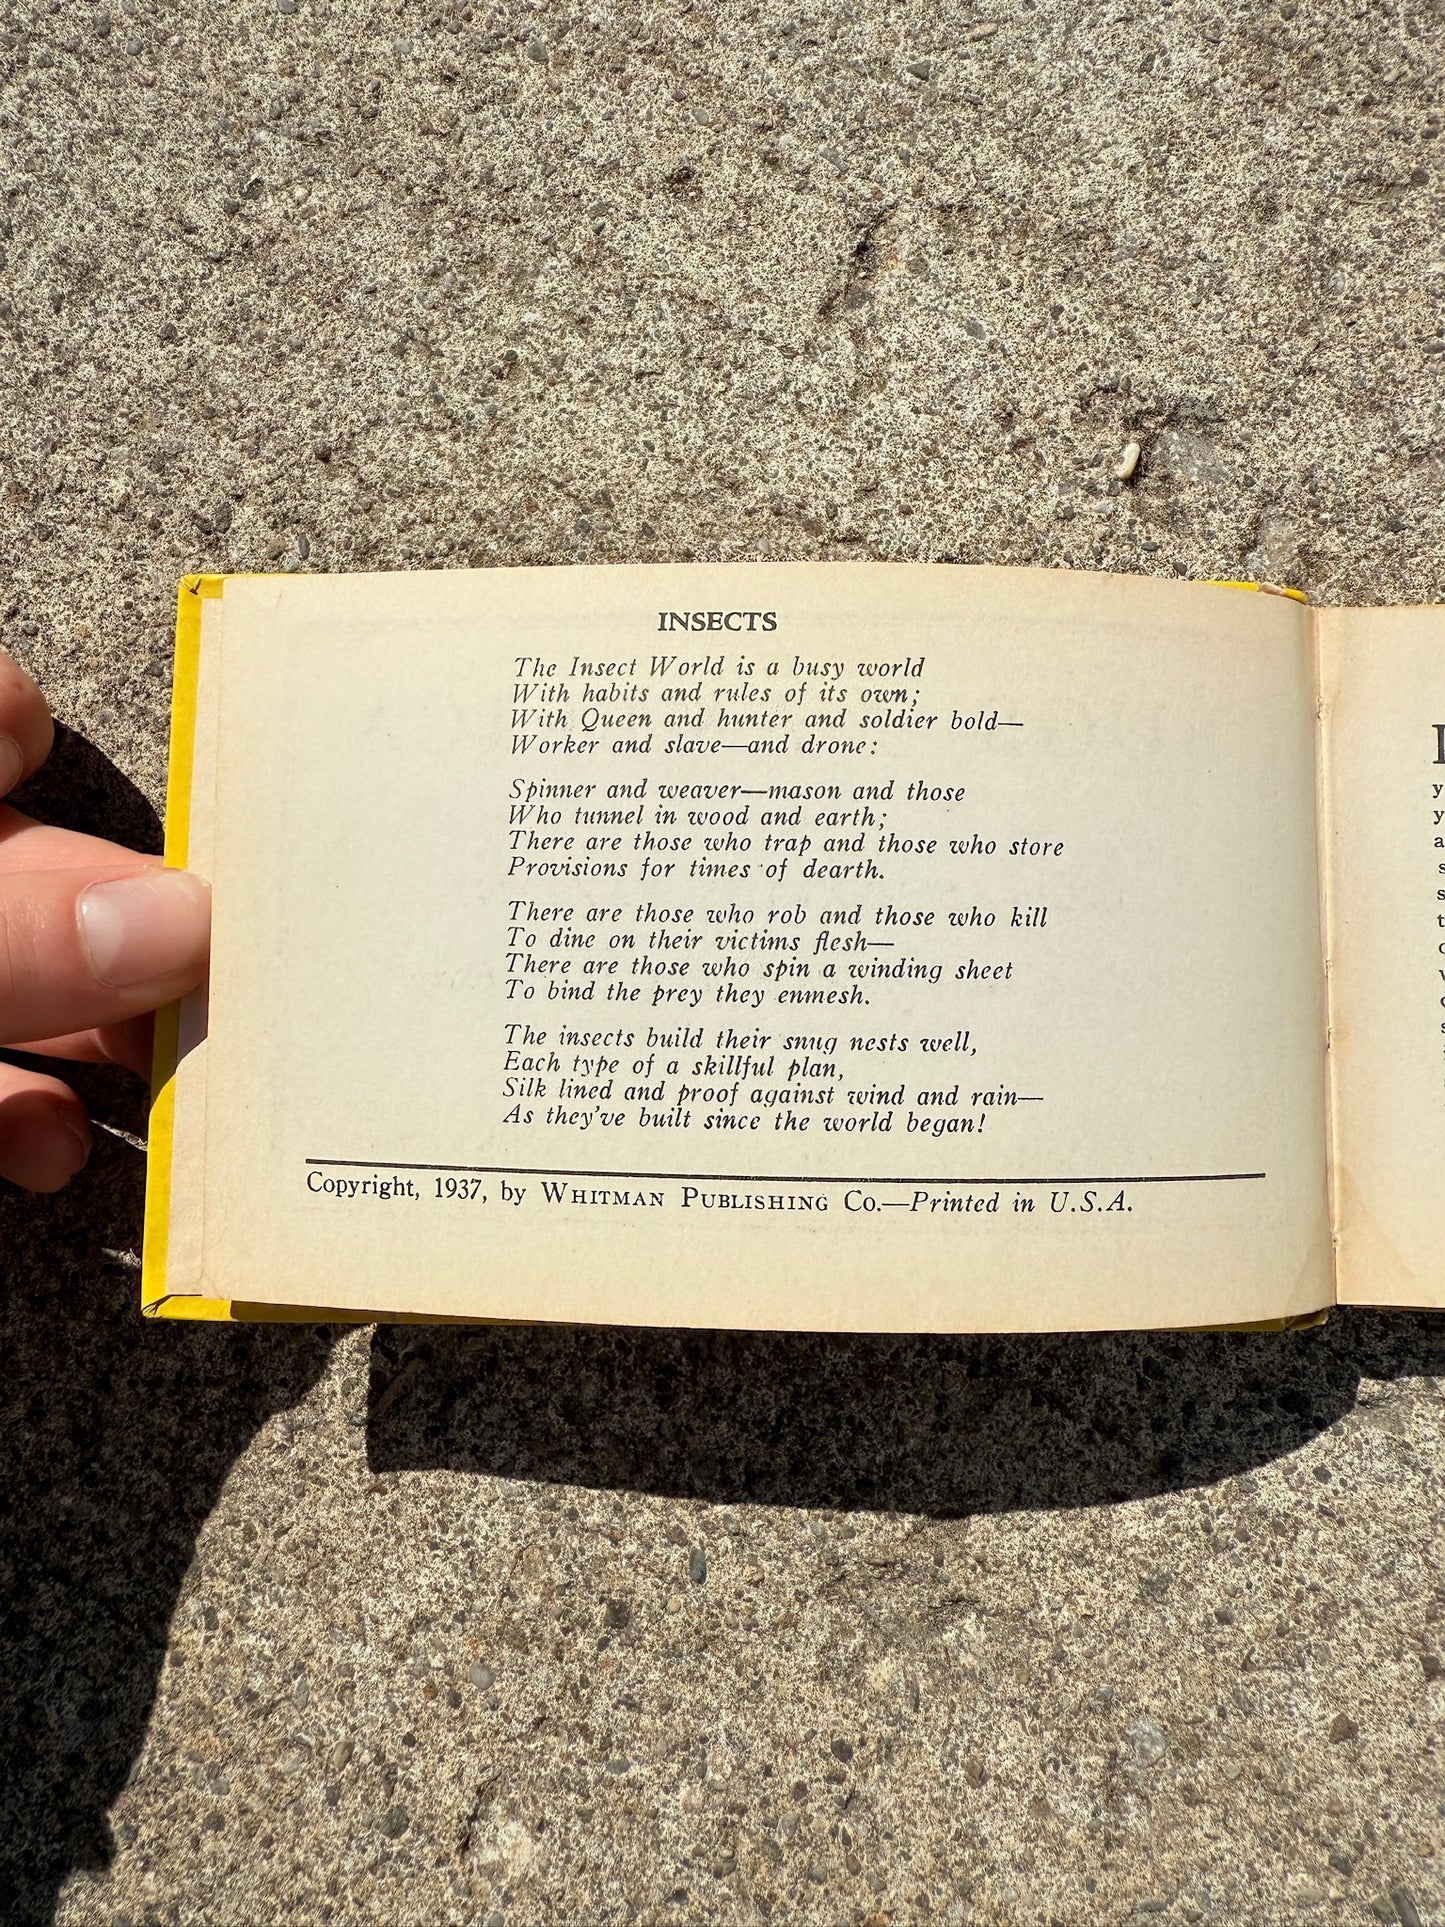 INSECTS
The Insect World is a busy world
With habits and rules of its own;
With Queen and hunter and soldier bold—
Worker and slave—and drone:
Spinner and weaver—mason and those
Who tunnel in wood and earth;
There are those who trap and those who store
Provisions for times of dearth.
There are those who rob and those who kill
To dine on their victims flesh—
There are those who spin a winding sheet
To bind the prey they enmesh.
The insects build their snug nests well,
Each type of a skillful plan,
Silk lined and proof against wind and rain—
As they've built since the world began!
Copyright, 1937, by WHITMAN PUBLISHING Co.—Printed in U.S.A.